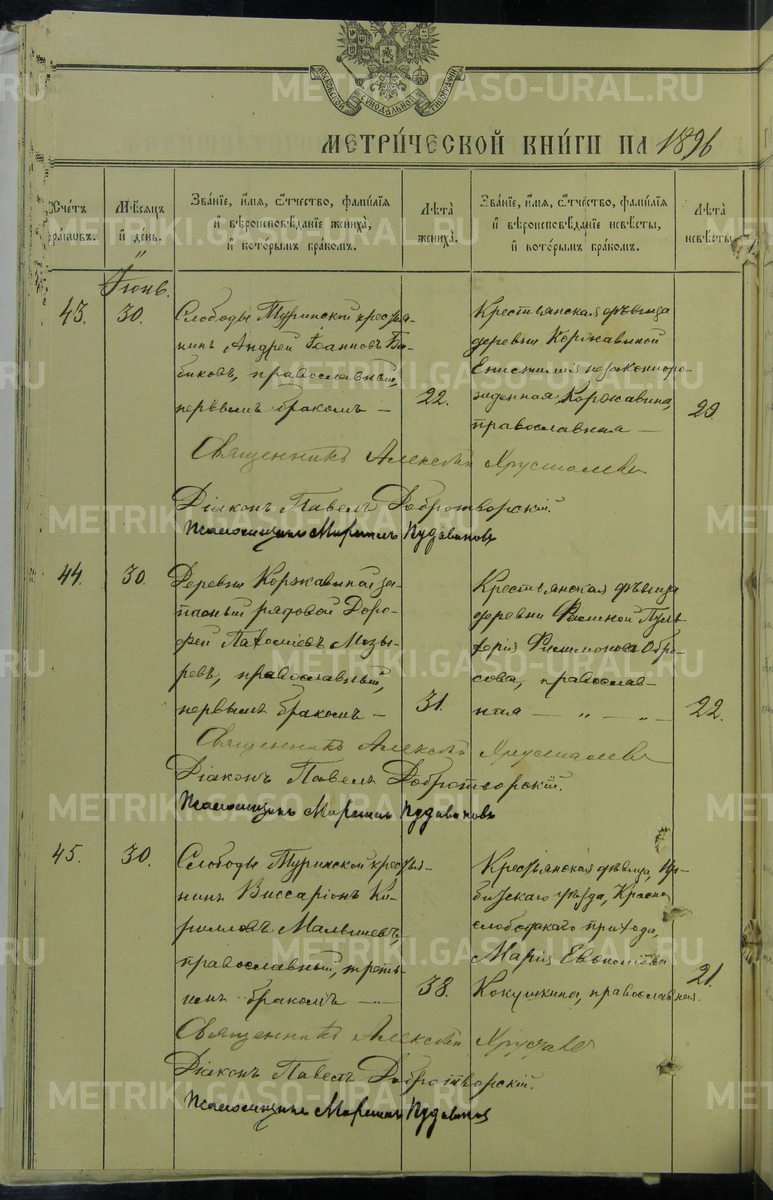 МОСКОВСКОЙ СѴНОДАЛЬНОЙ ТИПОГРАФІИ
МЕТРИ́ЧЕСКОЙ КНИ́ГИ НА 1896
Сче́тъ бра́ковъ.
Мѣ́сяцъ и҆ де́нь.
Зва́нїе, и҆́мѧ, ѻ҆́тчество, фами́лїѧ и҆ вѣроисповѣ́данїе жениха̀, и҆ кото́рымъ бра́комъ.
Лѣ́та жениха̀.
Зва́нїе, и҆́мѧ, ѻ҆́тчество, фами́лїѧ и҆ вѣроисповѣ́данїе невѣ́сты, и҆ кото́рымъ бра́комъ.
Лѣ́та невѣ́сты.
Іюнь.
43.
30.
Слободы Туринской крестья-
нинъ Андрей Іоанновъ Ба-
биковъ, православный,
первымъ бракомъ —
22.
Крестьянская дѣвица
деревни Коржавиной
незаконноро-
жденная Коржавина,
православная —
20
Священникъ Алексѣй Хрусталевъ
Діаконъ Павелъ Добротворскій.
Псаломщикъ
44.
30.
Деревни Коржавиной за-
пасный рядовой Доро-
фей Мозы-
ревъ, православный,
первымъ бракомъ —
31.
Крестьянская дѣвица
деревни Пуль-
херія Филимонова Обро-
сова, православ-
ная — „ — „ —
22.
Священникъ Алексѣй Хрусталевъ
Діаконъ Павелъ Добротворскій.
Псаломщикъ
45.
30.
Слободы Туринской крестья-
нинъ Виссаріонъ Ки-
рилловъ Малышевъ,
православный, треть-
имъ бракомъ —
38.
Крестьянская дѣвица, Ир-
битскаго уѣзда, Красно-
слободскаго прихода,
Марія
Кокушкина, православная.
21.
Священникъ Алексѣй
Діаконъ Павелъ Добротворскій.
Псаломщикъ
METRIKI.GASO-URAL.RU